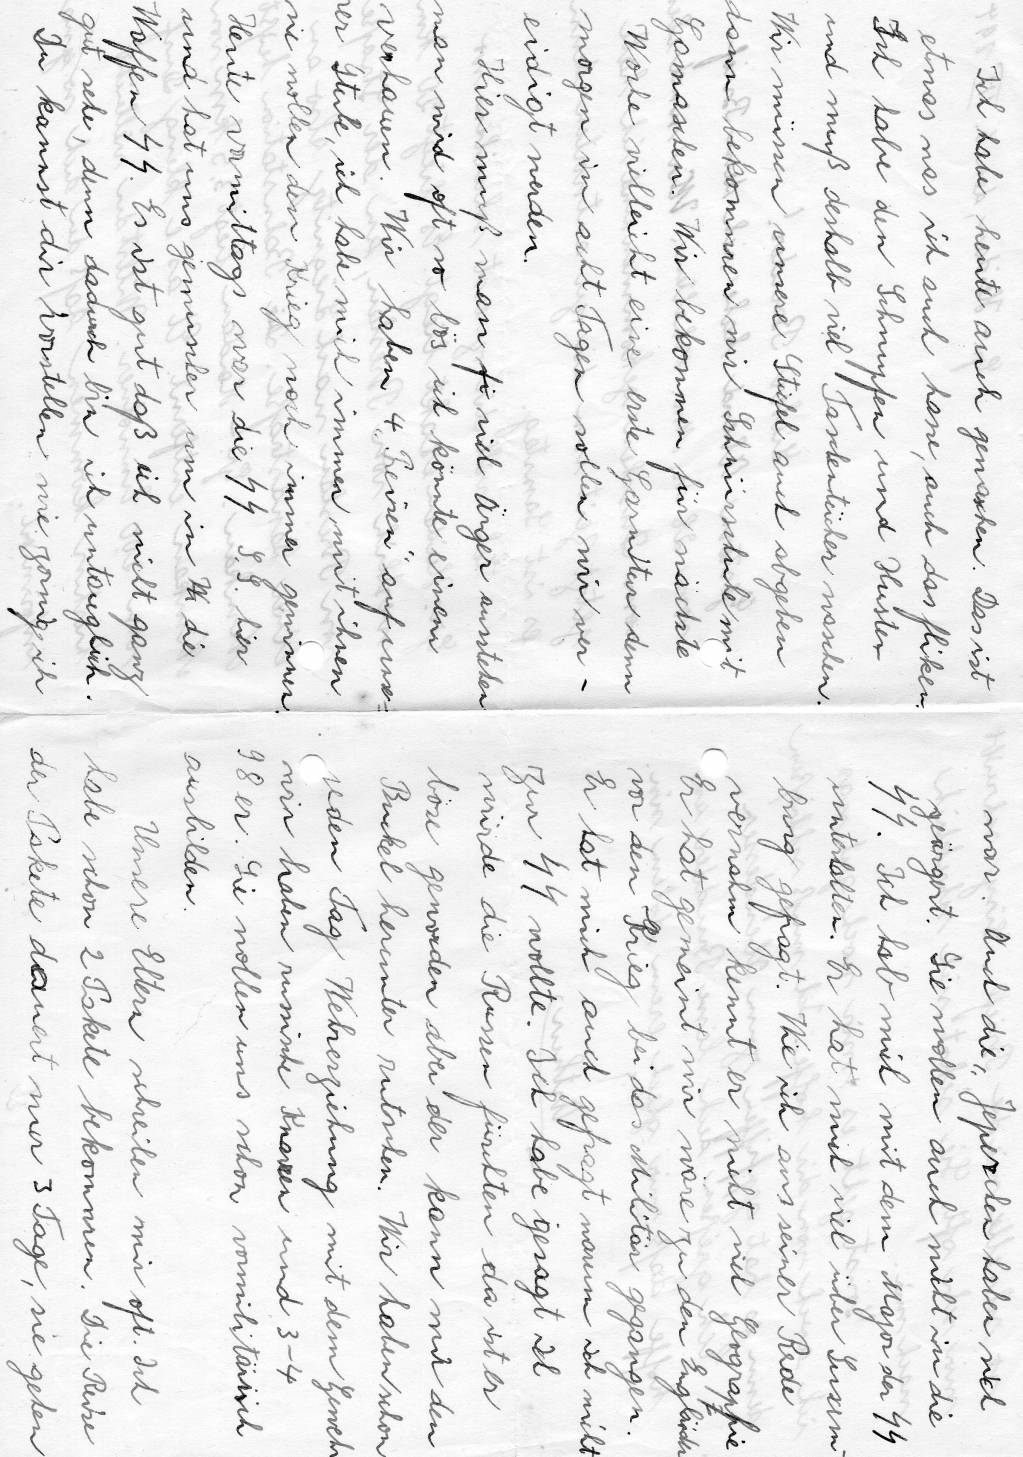 Ich habe heute auch gewaschen. Das ist
etwas was ich auch hasse, auch das fliken.
Ich habe den Schnupfen und Husten
und muß deshalb viel Taschentücher waschen.
Wir müssen unsere Stiefel auch abgeben
dann bekommen wir Schnürschuhe mit
Gamaschen. Wir bekommen für nächste
Woche villeicht eine erste Garnitur denn
morgen in acht Tagen sollen wir ver-
eidigt werden.
Hier muß man viel Ärger ausstehen
man wird oft so bös ich könnte einem
verhauen. Wir haben 4 „Preisen" auf unse-
rer Stube, ich hab mich immer mit ihnen
wie wollen den Krieg noch immer gewinnen.
Heute vormittags war die SS hier
und hat uns gemustert um in die
Waffen SS. Es ist gut daß ich nicht ganz
gut sehe, denn dadurch bin ich untauglich.
Du kannst dir vorstellen wie zornig ich
war. Und die „ haben sich
geärgert. Sie wollen auch nicht in die
SS. Ich hab mich mit dem Major der SS
unterhalten. Er hat mich viel über Luxem-
burg gefragt. Wie ich aus seiner Rede
vernahm kennt er nicht viel Geographie
Er hat gemeint wir wäre zu den Engländer
vor dem Krieg bei das Militär gegangen.
Er hat mich auch gefragt warum ich nicht
zur SS wollte. Ich habe gesagt ich
würde die Russen fürchten da ist er
böse geworden aber der kann mir den
Buckel herunter rutschen. Wir haben schon
jeden Tag Wehrerziehung mit dem Gewehr
wir haben russische Knarren und 3-4
98er. Sie wollen uns schon vormilitärisch
ausbilden.
Unsere Eltern schreiben mir oft. Ich
habe schon 2 Pakete bekommen. Die Reise
der Pakete dauert nur 3 Tage, sie gehen